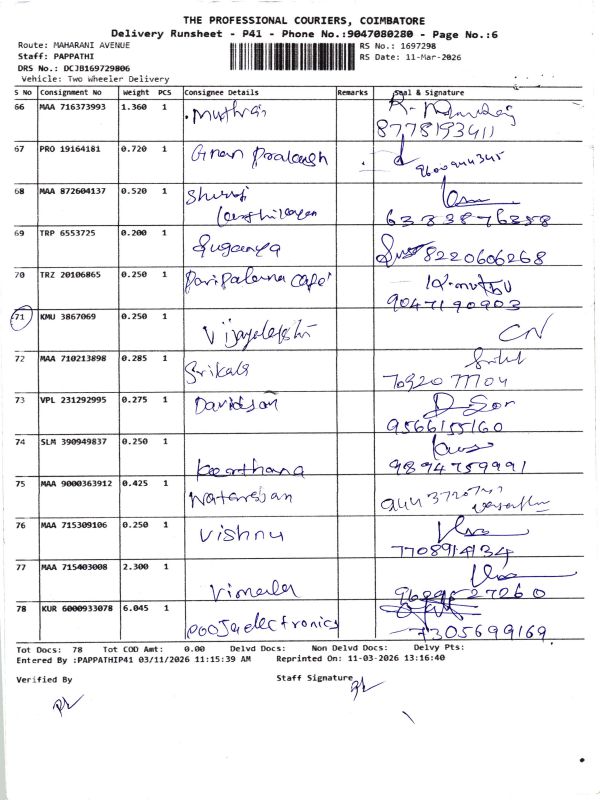 THE PROFESSIONAL COURIERS, COIMBATORE
Delivery Runsheet - P41 - Phone No.:9047080280 - Page No.:6
Route: MAHARANI AVENUE
RS No.: 1697298
Staff: PAPPATHI
RS Date: 11-Mar-2026
DRS No.: DCJB169729806
Vehicle: Two Wheeler Delivery
S No Consignment No Weight PCS Consignee Details Remarks Seal & Signature
66 MAA 716373993 1.360 1
8778193411
67 PRO 19164181 0.720 1 Gnan Prakash
9600944345
68 MAA 872604137 0.520 1
69 TRP 6553725 0.200 1 Suganya 8220606268
70 TRZ 20106865 0.250 1 cafe
9047190903
71 KMU 3867069 0.250 1 Vijayalakshi CN
72 MAA 710213898 0.285 1 Srikala
73 VPL 231292995 0.275 1 Davidson
9566155160
74 SLM 390949837 0.250 1 Keerthana
9894759991
75 MAA 9000363912 0.425 1 Natarajan
76 MAA 715309106 0.250 1 Vishnu
7708914134
77 MAA 715403008 2.300 1 Vimala
78 KUR 6000933078 6.045 1 Pooja electronics
7305699169
Tot Docs: 78 Tot COD Amt: 0.00 Delvd Docs: Non Delvd Docs: Delvy Pts:
Entered By :PAPPATHIP41 03/11/2026 11:15:39 AM Reprinted On: 11-03-2026 13:16:40
Verified By Staff Signature